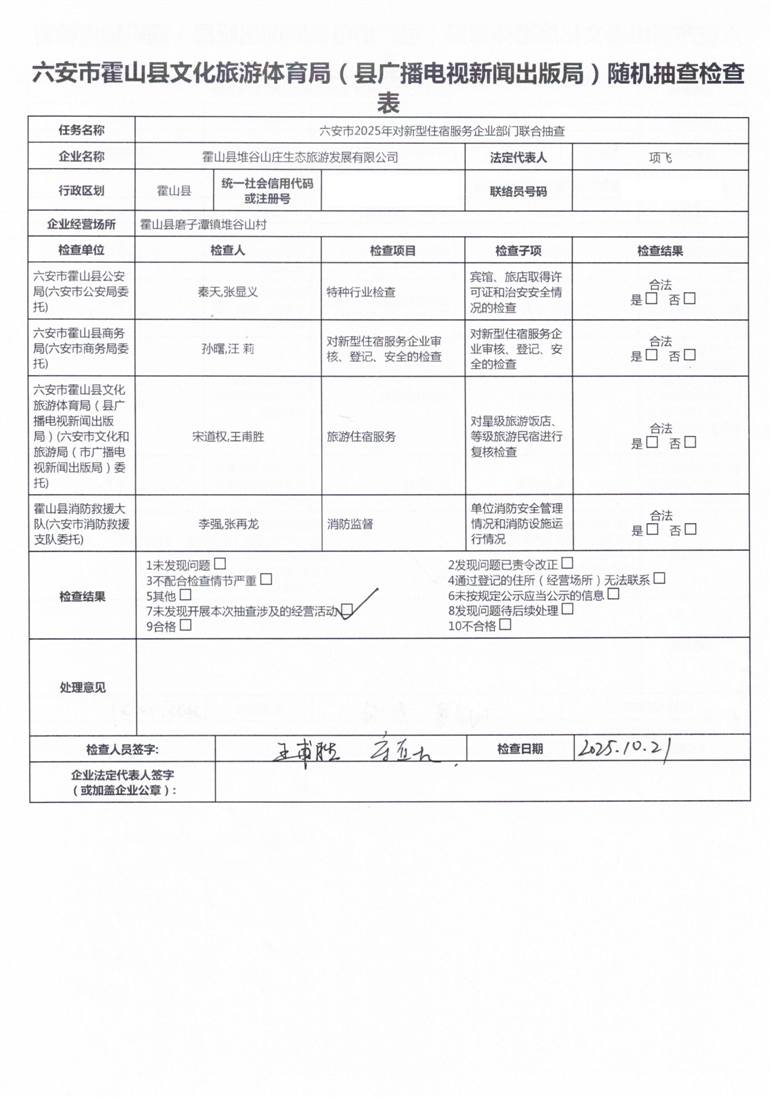 六安市霍山县文化旅游体育局（县广播电视新闻出版局）随机抽查检查
表
任务名称 六安市2025年对新型住宿服务企业部门联合抽查
企业名称 霍山县堆谷山庄生态旅游发展有限公司 法定代表人 项飞
行政区划 霍山县 统一社会信用代码
或注册号 联络员号码
企业经营场所 霍山县磨子潭镇堆谷山村
检查单位 检查人 检查项目 检查子项 检查结果
六安市霍山县公安
局(六安市公安局委
托)
秦天,张显义
特种行业检查
宾馆、旅店取得许
可证和治安安全情
况的检查
合法
是□ 否□
六安市霍山县商务
局(六安市商务局委
托)
孙曙,汪 莉
对新型住宿服务企业审
核、登记、安全的检查
对新型住宿服务企
业审核、登记、安
全的检查
合法
是□ 否□
六安市霍山县文化
旅游体育局（县广
播电视新闻出版
局）(六安市文化和
旅游局（市广播电
视新闻出版局）委
托)
宋道权,王甫胜
旅游住宿服务
对星级旅游饭店、
等级旅游民宿进行
复核检查
合法
是□ 否□
霍山县消防救援大
队(六安市消防救援
支队委托)
李强,张再龙
消防监督
单位消防安全管理
情况和消防设施运
行情况
合法
是□ 否□
检查结果
1未发现问题□ 2发现问题已责令改正□
3不配合检查情节严重□ 4通过登记的住所（经营场所）无法联系□
5其他□ 6未按规定公示应当公示的信息□
7未发现开展本次抽查涉及的经营活动□✓ 8发现问题待后续处理□
9合格□ 10不合格□
处理意见
检查人员签字: 王甫胜 检查日期 2025.10.21
企业法定代表人签字
（或加盖企业公章）: